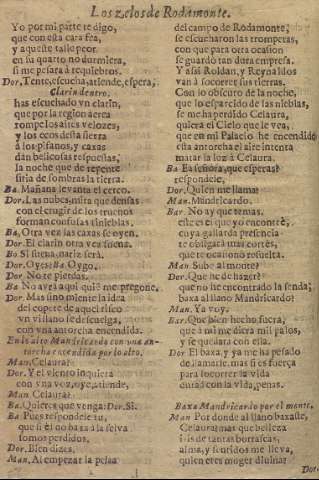 Los zelos de Rodamonte.
Yo por mi parte te digo,
que con esta cara fea,
y aqueste talle peor
en tu quarto no durmiera,
si me pesàra à requiebros.
Dor. Tente, escucha, atiende, espera,
Clarin dentro.
has escuchado vn clarin,
que por la region aerea
rompe los aires velozes,
y los ecos desta sierra
à los pifanos, y caxas
dàn belicosas respuestas,
la noche que de repente
tiria de sombras la tierra.
Ba. Mañana levanta el cerco.
Dor. Las nubes, mira que densas
con el crugir de los truenos
forman confusas tinieblas.
Ba. Otra vez las caxas se oyen.
Dor. El clarin otra vez suena.
Ba Si suena, nariz serà.
Dor. Oyes: Ba. Oygo.
Dor. No te pierdas.
Ba No avrà aqui quiẽ me pregone.
Dor. Mas sino miente la idea
del copete de aquel risco
vn villano se descuelga,
con vna antorcha encendida.
En lo alto Mandricardo con vna an-
torcha encendida por lo alto.
Man. Celaura?
Dor. Y el viento inquieta
con vna voz, oye, atiende,
Man Celaura?
Ba. Quieres que venga: Dor. Si.
Ba Pues respondele tu,
que si èl no baxa à la selva
somos perdidos.
Dor. Bien dizes.
Man. Al empezar la pelea
del campo de Rodamonte,
se escucharon las trompetas,
con que para otra ocasion
se guardò tan dura empresa.
Y assi Roldan, y Reynaldos
vàn à socorrer sus tierras.
Con lo obscuro de la noche,
que lo esparcido de las nieblas,
se me ha perdido Celaura,
quiera el Cielo que le vea,
que en mi Palacio he encendido
esta antorcha el aire intenta
matar la luz à Celaura.
Ba Ea señora, que esperas?
respondele.
Dor. Quien me llama?
Man. Mandricardo.
Bar. No ay que temas.
este es el que yo encontrè,
cuya gallarda presencia
te obligarà mas cortès,
que te ocasionò resuelta.
Man Sube al monte?
Dor. Que he de hazer?
que no he encontrado la senda;
baxa al llano Mandricardo?
Man. Ya voy.
Bar. Que bien hecho fuera,
que à mi me diera mil palos,
y se quedara con ella.
Dor El baxa, y ya me ha pesado
de llamarle, mas si es fuerça
para socorrer la vida
Baxa Mandricardo por el monte.
Man Por donde al llano baxaste,
Celaura? mas que belleza
alma, y sentidos me lleva,
Dor